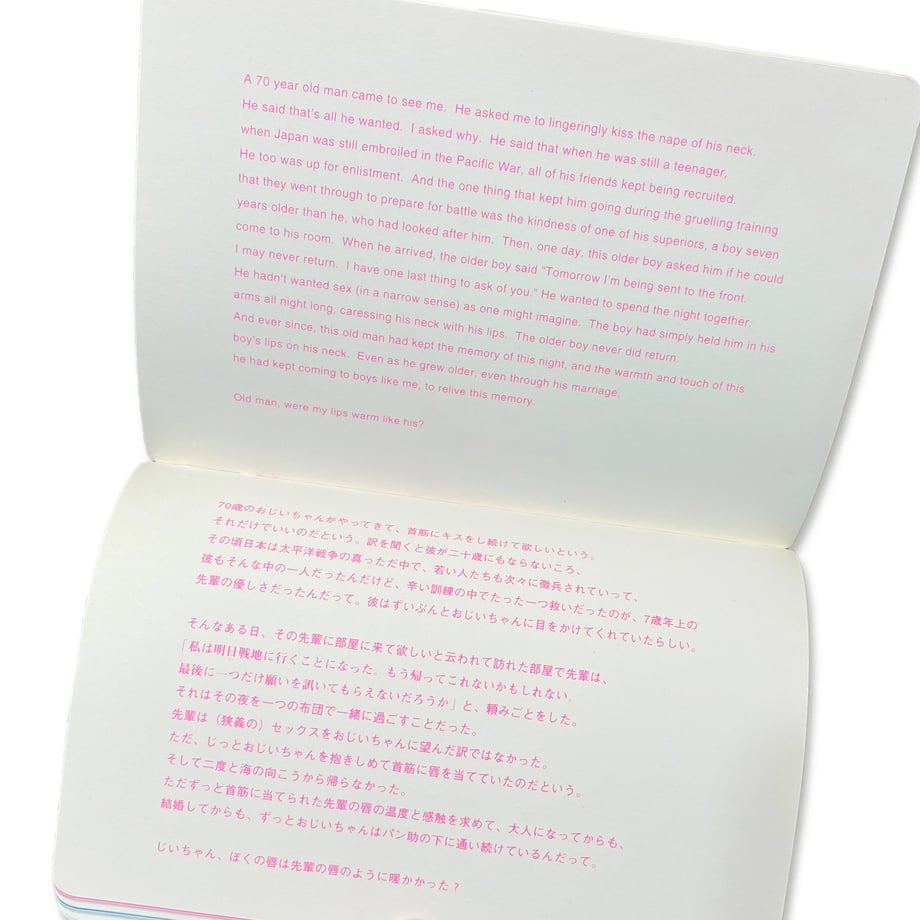 A 70 year old man came to see me. He asked me to lingeringly kiss the nape of his neck.
He said that's all he wanted. I asked why. He said that when he was still a teenager,
when Japan was still embroiled in the Pacific War, all of his friends kept being recruited.
He too was up for enlistment. And the one thing that kept him going during the gruelling training
that they went through to prepare for battle was the kindness of one of his superiors, a boy seven
years older than he, who had looked after him. Then, one day, this older boy asked him if he could
come to his room. When he arrived, the older boy said “Tomorrow I'm being sent to the front.
I may never return. I have one last thing to ask of you.” He wanted to spend the night together.
He hadn't wanted sex (in a narrow sense) as one might imagine. The boy had simply held him in his
arms all night long, caressing his neck with his lips. The older boy never did return.
And ever since, this old man had kept the memory of this night, and the warmth and touch of this
boy's lips on his neck. Even as he grew older, even through his marriage,
he had kept coming to boys like me, to relive this memory.
Old man, were my lips warm like his?
70歳のおじいちゃんがやってきて、首筋にキスをし続けて欲しいという。
それだけでいいのだという。訳を聞くと彼が二十歳にもならないころ、
その頃日本は太平洋戦争の真っただ中で、若い人たちも次々に徴兵されていって、
彼もそんな中の一人だったんだけど、辛い訓練の中でたった一つ救いだったのが、7歳年上の
先輩の優しさだったんだって。彼はずいぶんとおじいちゃんに目をかけてくれていたらしい。
そんなある日、その先輩に部屋に来て欲しいと云われて訪れた部屋で先輩は、
「私は明日戦地に行くことになった。もう帰ってこれないかもしれない。
最後に一つだけ願いを訊いてもらえないだろうか」と、頼みごとをした。
それはその夜を一つの布団で一緒に過ごすことだった。
先輩は（狭義の）セックスをおじいちゃんに望んだ訳ではなかった。
ただ、じっとおじいちゃんを抱きしめて首筋に唇を当てていたのだという。
そして二度と海の向こうから帰らなかった。
ただずっと首筋に当てられた先輩の唇の温度と感触を求めて、大人になってからも、
結婚してからも、ずっとおじいちゃんはパン助の下に通い続けているんだって。
じいちゃん、ぼくの唇は先輩の唇のように暖かかった？